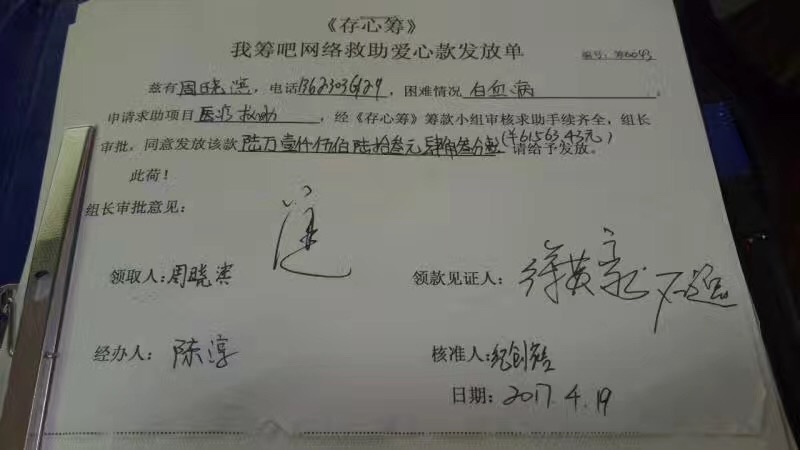 《存心筹》
我筹吧网络救助爱心款发放单
编号：筹0043
兹有周晓滨，电话13623036127，困难情况白血病。
申请求助项目医疗救助，经《存心筹》筹款小组审核求助手续齐全，组长
审批，同意发放该款陆万壹仟伍佰陆拾叁元肆角叁分整(￥61563.43元)请给予发放。
此荷！
组长审批意见：
领取人：周晓滨 领款见证人：
经办人：陈淳 核准人：
日期：2017.4.19